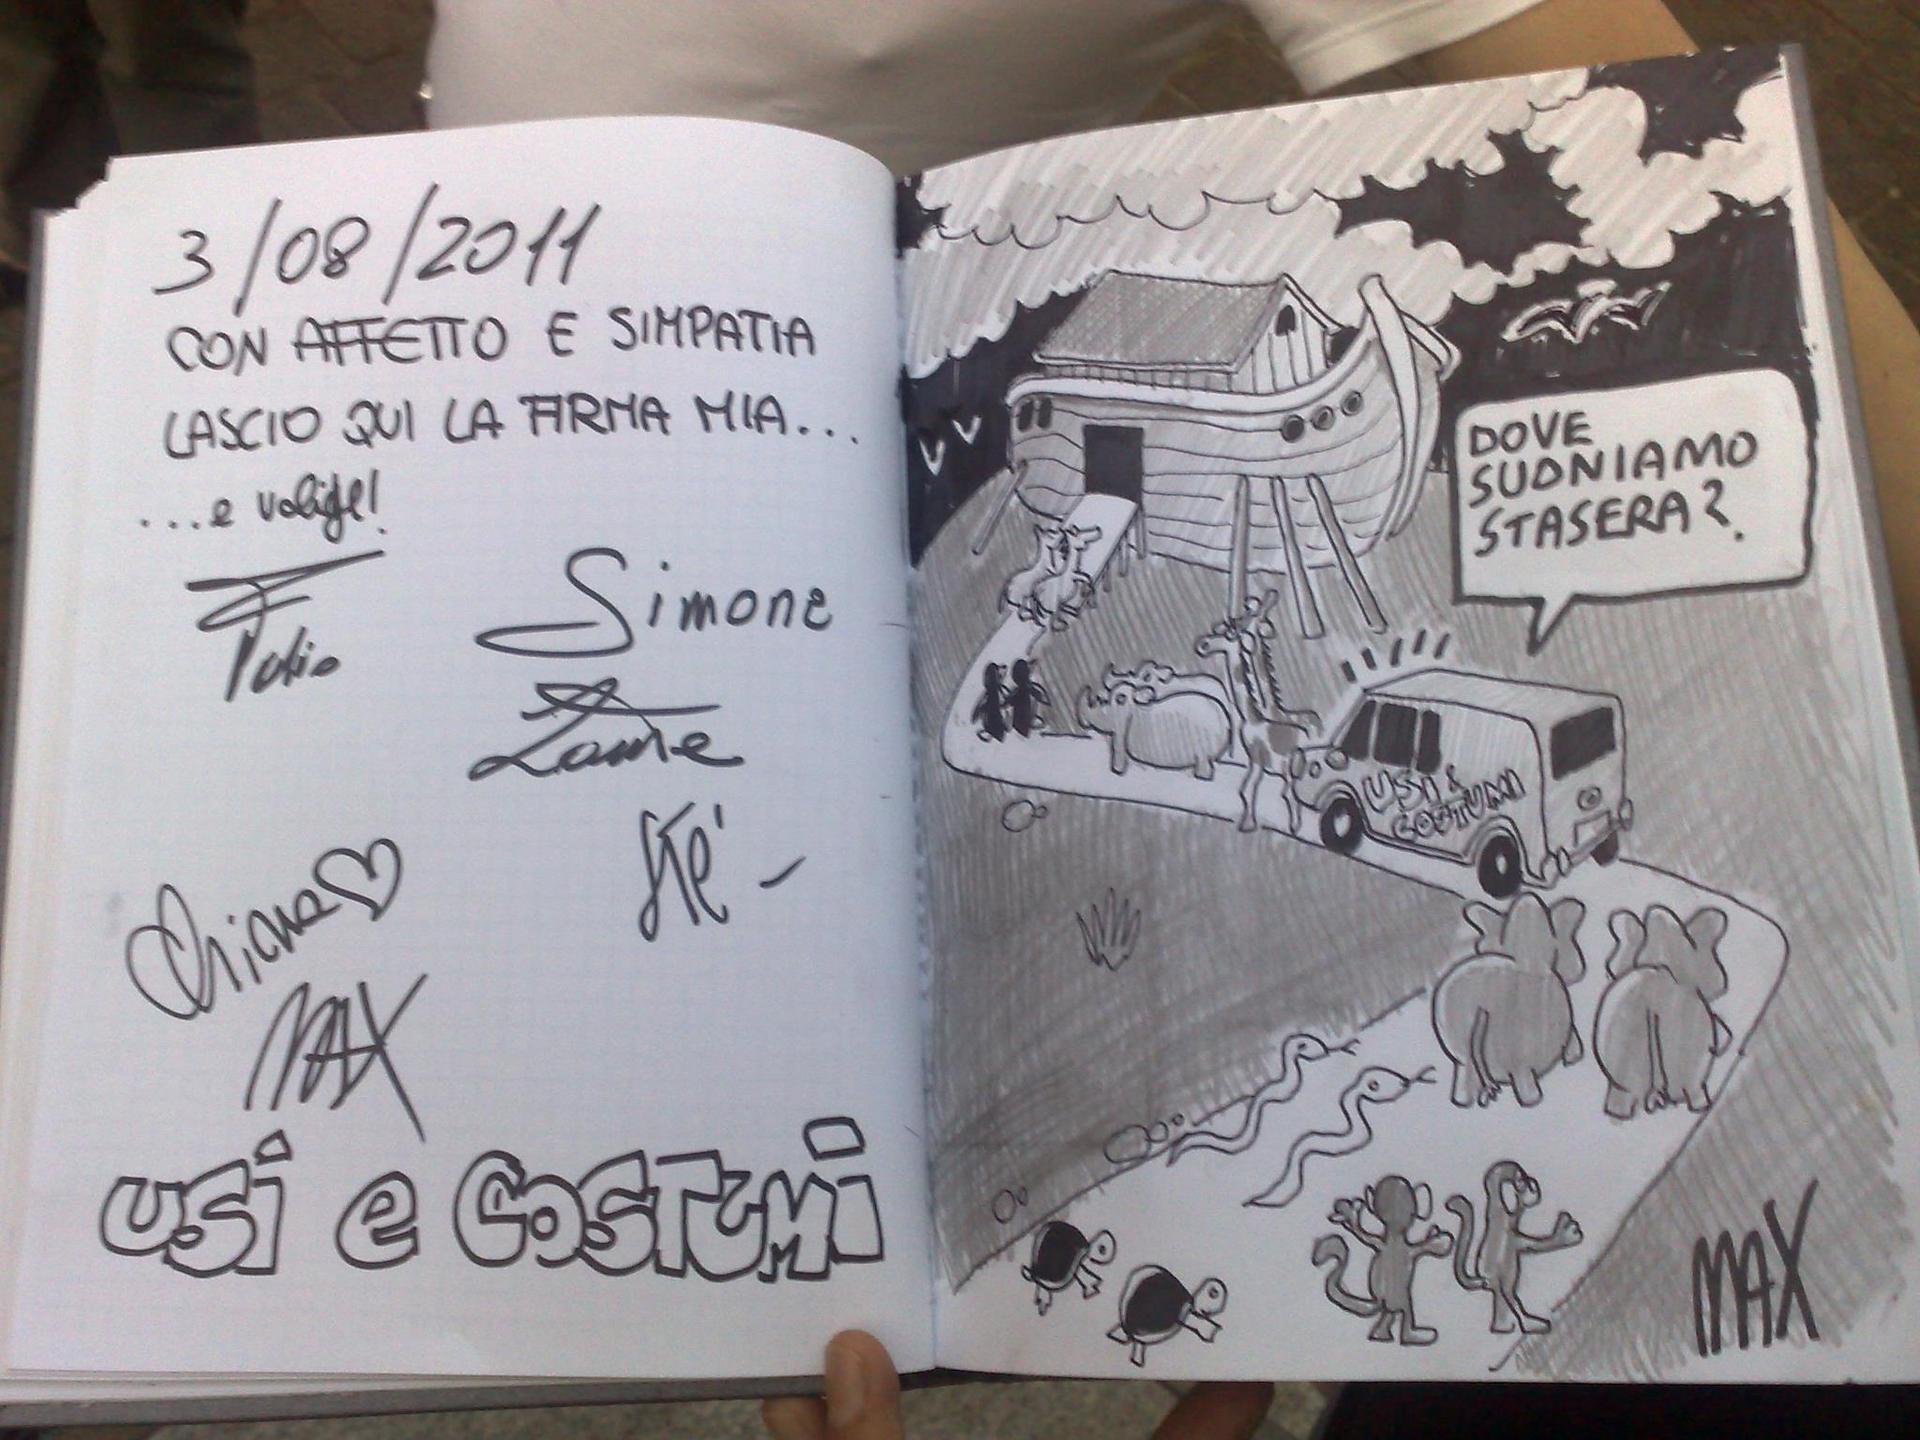 3/08/2011
CON AFFETTO E SIMPATIA
LASCIO QUI LA FIRMA MIA...
...e valige!
Fabio
Simone
Chiara
Stè
MAX
USI e COSTUMI
DOVE
SUONIAMO
STASERA?
USI &
COSTUMI
MAX